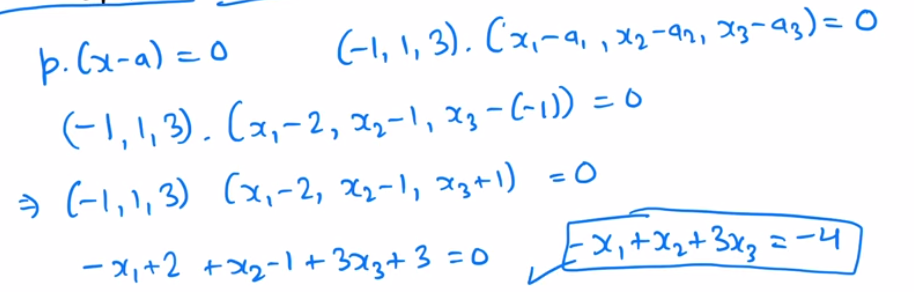 p.(x-a) = 0 (-1, 1, 3). (x₁-a₁, x₂-a₂, x₃-a₃) = 0
(-1, 1, 3). (x₁-2, x₂-1, x₃-(-1)) = 0
⇒ (-1, 1, 3) (x₁-2, x₂-1, x₃+1) = 0
-x₁+2 +x₂-1+3x₃+3 = 0 -x₁+x₂+3x₃ = -4